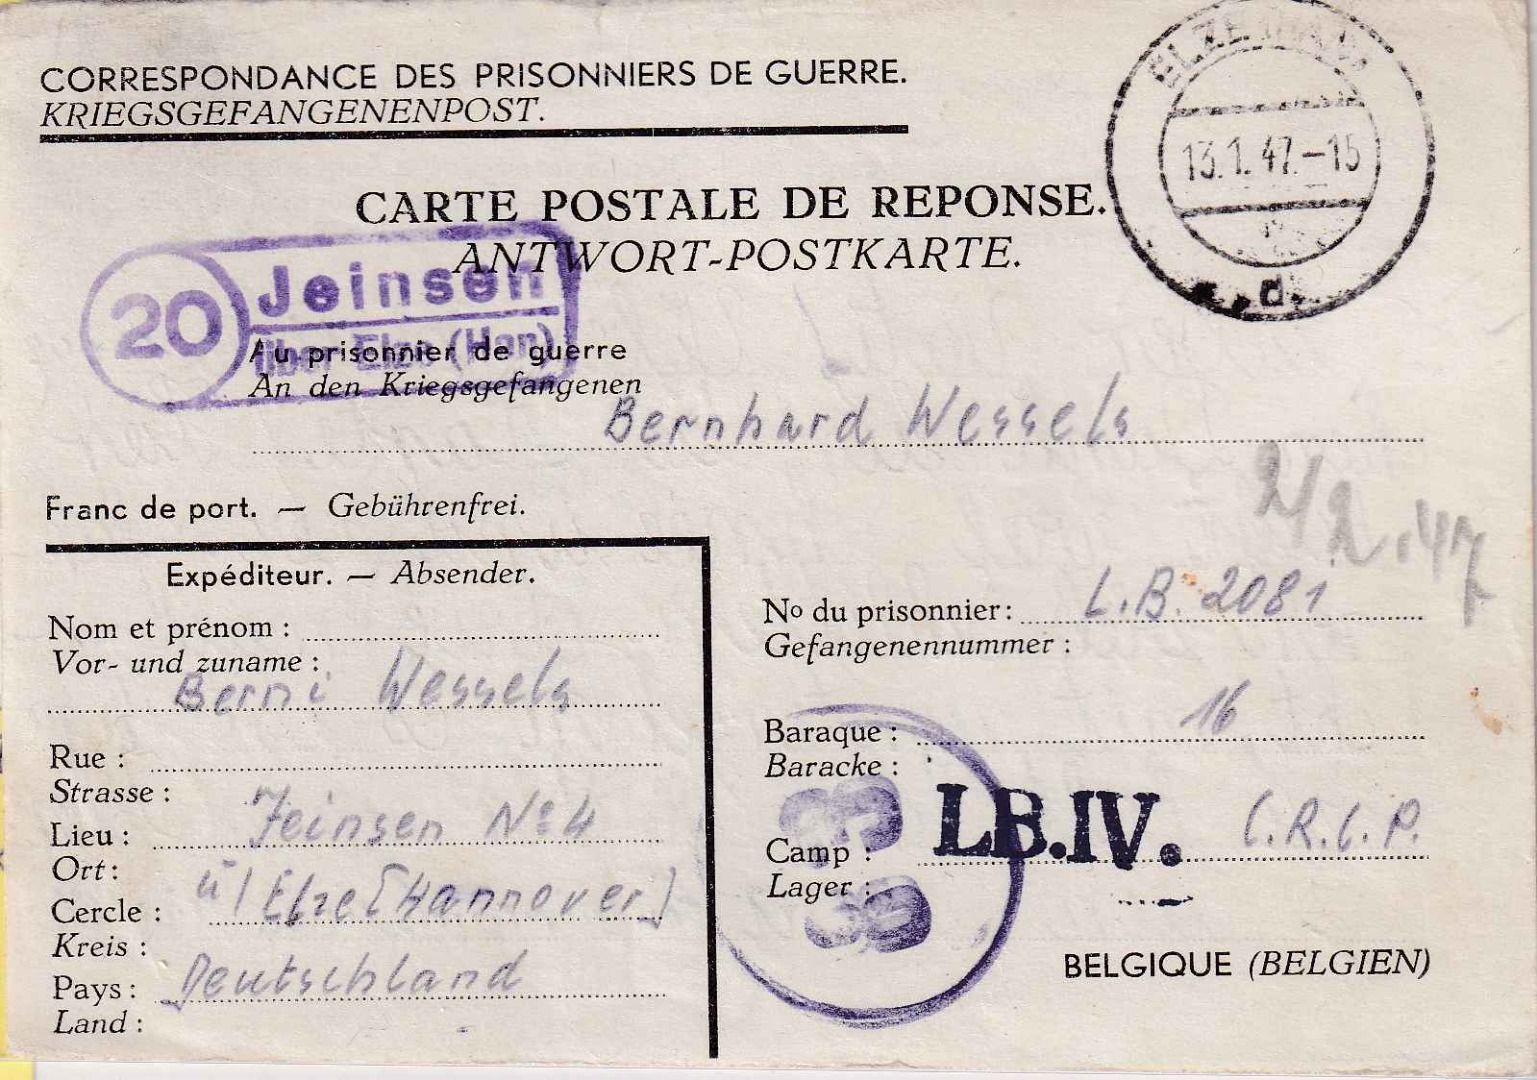 CORRESPONDANCE DES PRISONNIERS DE GUERRE.
KRIEGSGEFANGENENPOST.
ELZE
13.1.47.-15
d
CARTE POSTALE DE REPONSE.
ANTWORT-POSTKARTE.
20 Jeinsen
über Elze (Han)
Au prisonnier de guerre
An den Kriegsgefangenen
Bernhard Wessels
2/2.47
Franc de port. — Gebührenfrei.
Expéditeur. — Absender.
Nom et prénom :
Vor- und zuname :
Berni Wessels
Rue :
Strasse :
Lieu : Jeinsen No 4
Ort :
Cercle : ü/Elze [Hannover]
Kreis :
Pays : Deutschland
Land :
No du prisonnier : L.B. 2081
Gefangenennummer :
Baraque : 16
Baracke :
Camp : LB.IV. C.R.C.P.
Lager :
BELGIQUE (BELGIEN)